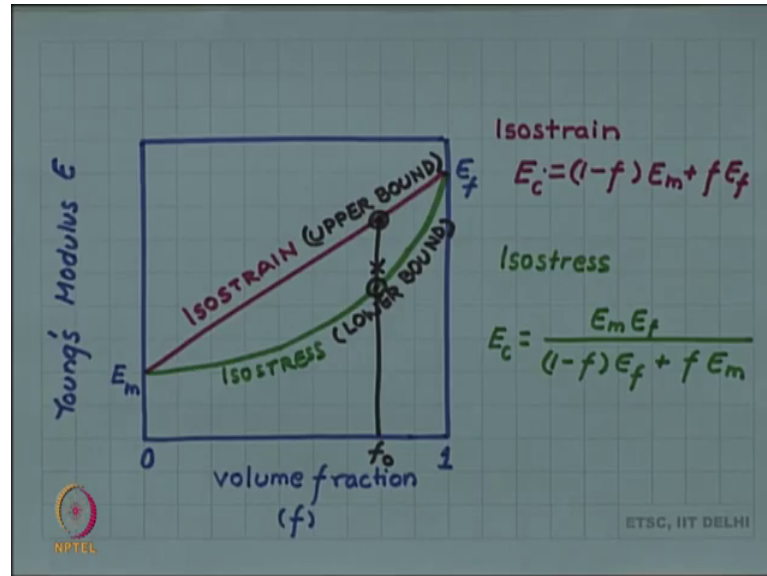 Young's Modulus E
E_m
E_f
ISOSTRAIN (UPPER BOUND)
ISOSTRESS (LOWER BOUND)
0
f_0
1
volume fraction
(f)
Isostrain
E_c = (1-f) E_m + f E_f
Isostress
E_c = E_m E_f / ((1-f) E_f + f E_m)
NPTEL
ETSC, IIT DELHI